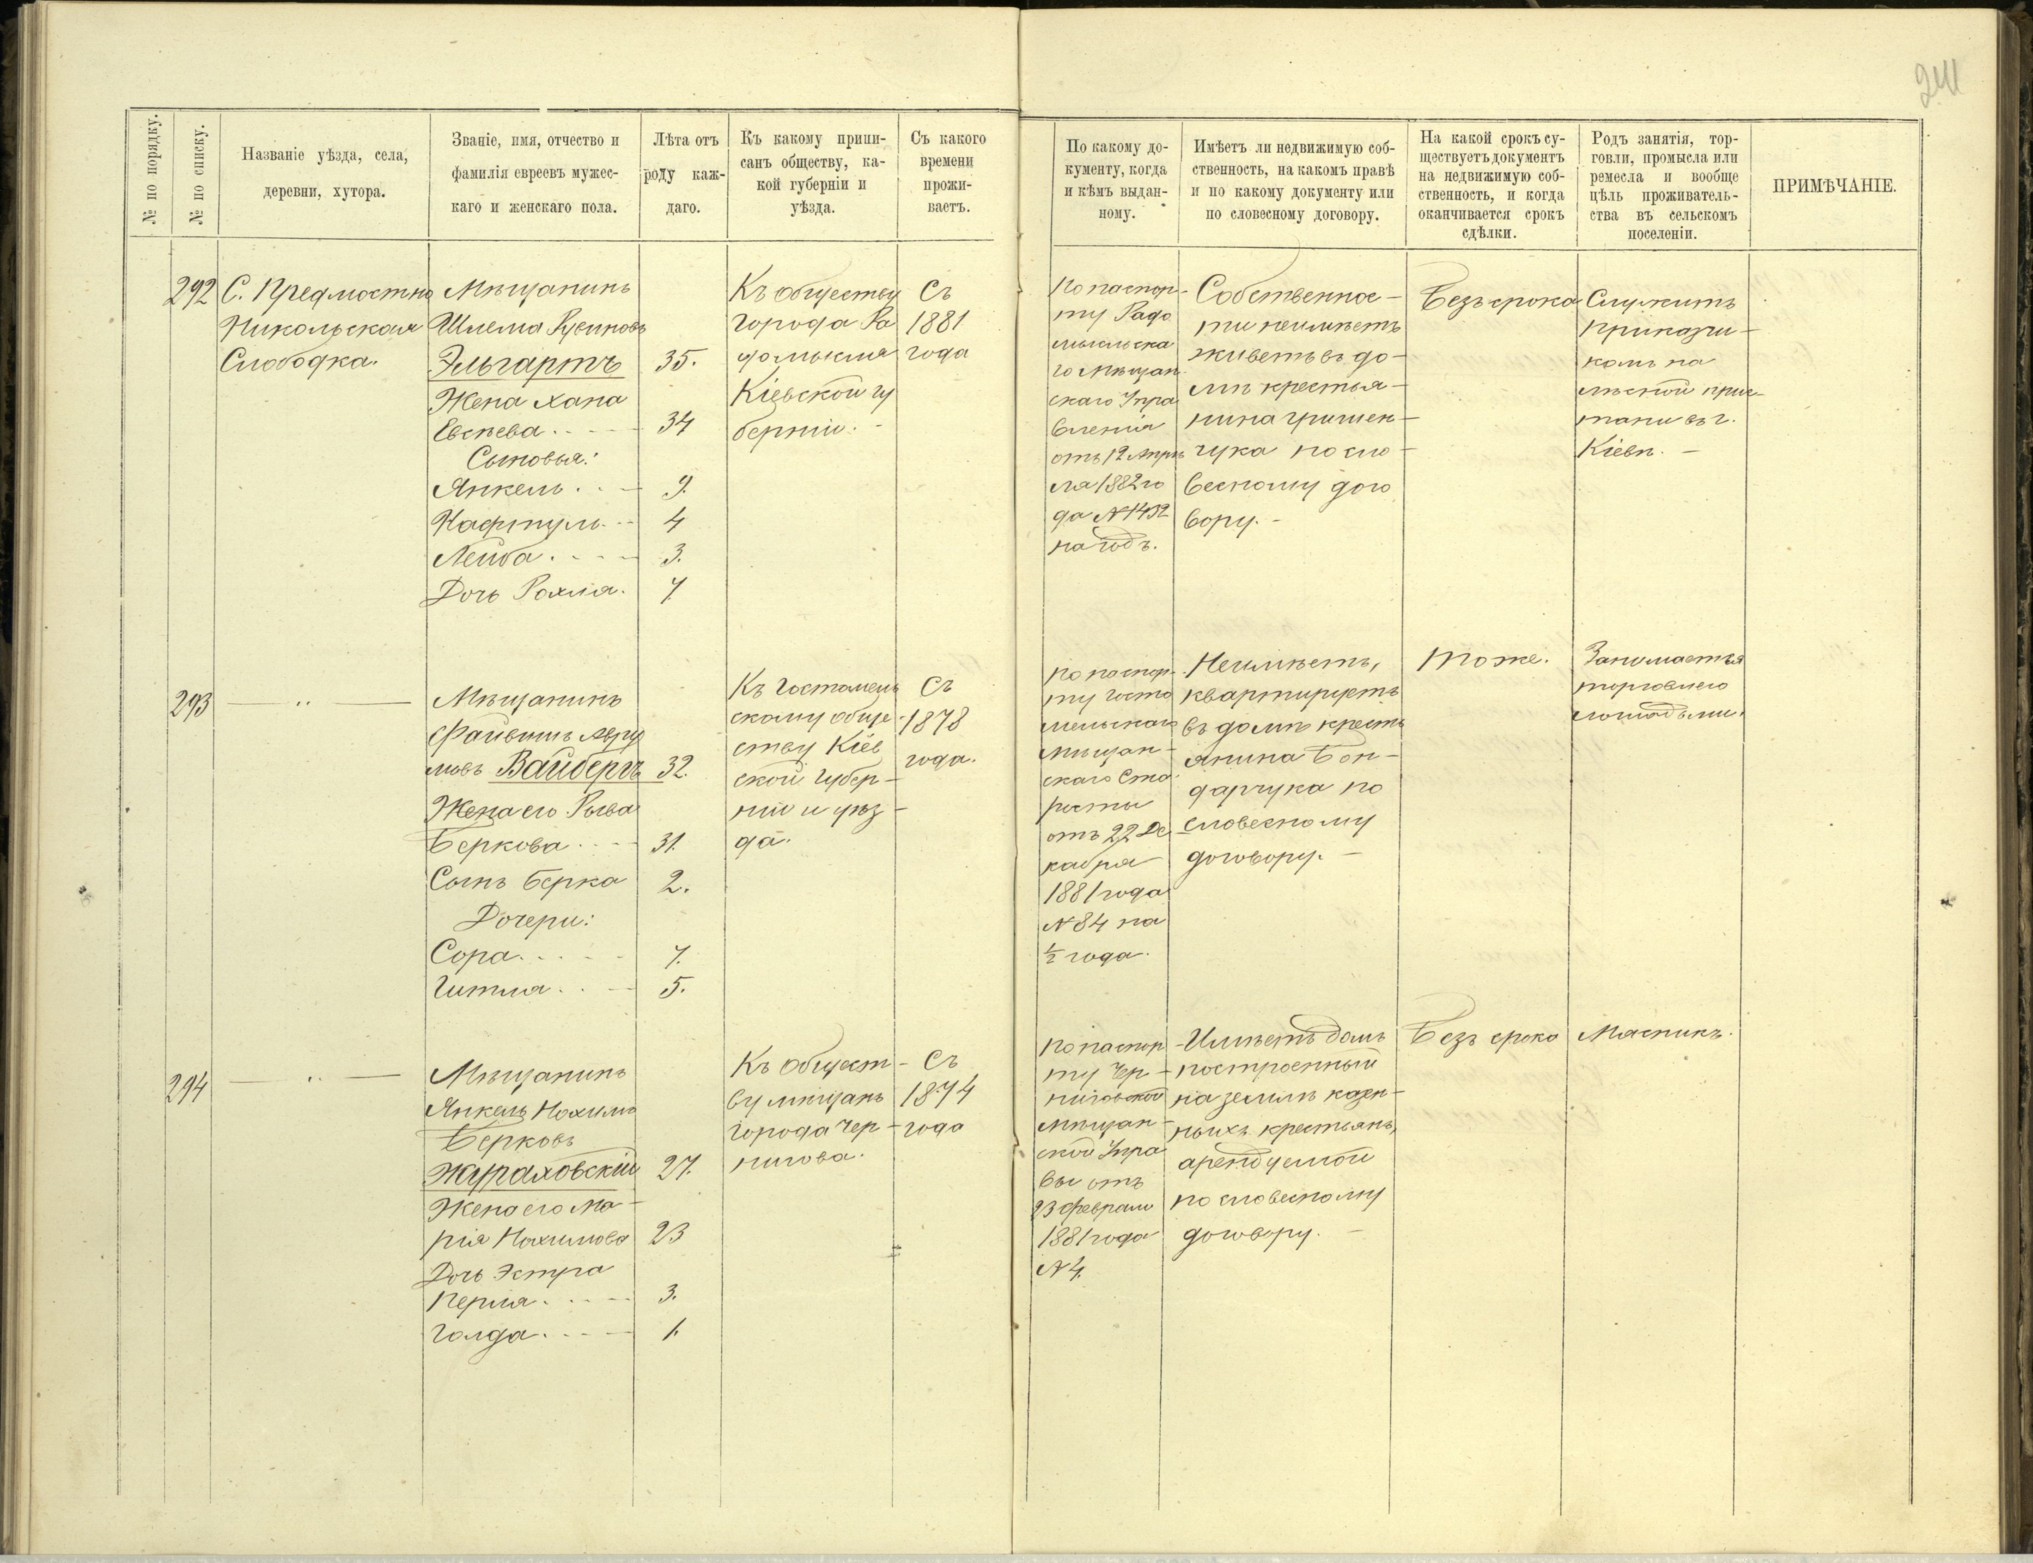 241
№ по порядку.
№ по списку.
Названіе уѣзда, села,
деревни, хутора.
Званіе, имя, отчество и
фамилія евреевъ мужес-
каго и женскаго пола.
Лѣта отъ
роду каж-
даго.
Къ какому припи-
санъ обществу, ка-
кой губерніи и
уѣзда.
Съ какого
времени
прожи-
ваетъ.
По какому до-
кументу, когда
и кѣмъ выдан-
ному.
Имѣетъ ли недвижимую соб-
ственность, на какомъ правѣ
и по какому документу или
по словесному договору.
На какой срокъ су-
ществуетъ документъ
на недвижимую соб-
ственность, и когда
оканчивается срокъ
сдѣлки.
Родъ занятія, тор-
говли, промысла или
ремесла и вообще
цѣль проживатель-
ства въ сельскомъ
поселеніи.
ПРИМѢЧАНІЕ.
292
С. Предмостно
Никольская
Слободка.
Мѣщанинъ
Шлема Русиновъ
Эльгартъ 35.
Жена Хана
Евсѣева 34
Сыновья:
Янкель 9.
Кафтулъ 4
Лейба 3.
Дочь Рохля. 7.
Къ обществу
города Ра
домысля
Кіевской гу
берніи.
Съ
1881
года
По паспор-
ту Радо
мысльска
го Мѣщан
скаго Упра
вленія
отъ 12 Апрѣ
ля 1882 го
да № 1432
на годъ.
Собственнос-
ти неимѣетъ
живетъ въ до-
мѣ крестья-
нина Гришен-
чука по сло-
весному дого
вору.
Безъ срока
Служитъ
прикащи-
комъ на
лѣсной прис-
тани въ г.
Кіевѣ.
293
Мѣщанинъ
Файвишъ Авру
мовъ Вайбергъ 32.
Жена его Рыва
Беркова 31.
Сынъ Берка 2.
Дочери:
Сора 7.
Гитля 5.
Къ Гостомель
скому обще-
ству Кіев
ской Губер-
ніи и уѣз-
да.
Съ
1878
года.
По паспор-
ту Госто
мельскаго
Мѣщан-
скаго Ста-
росты
отъ 22 Де
кабря
1881 года
№ 84 на
½ года.
Неимѣетъ,
квартируетъ
въ домѣ кресть
янина Бон-
дарчука по
словесному
договору.
Тоже.
Занимается
торговлею
лошадьми.
294
Мѣщанинъ
Янкель Нохимъ
Берковъ
Жураховскій 27.
Жена его Ма-
рія Нохимова 23
Дочь Эстра
Перля 3.
Голда 1.
Къ Общест-
ву мѣщанъ
города Чер-
нигова.
Съ
1874
года
По паспор
ту Чер-
ниговской
Мѣщан-
ской Упра
вы отъ
23 февраля
1881 года
№ 4.
Имѣетъ домъ
построенный
на землѣ казен-
ныхъ крестьянъ,
арендуемой
по словесному
договору.
Безъ срока
Мясникъ.